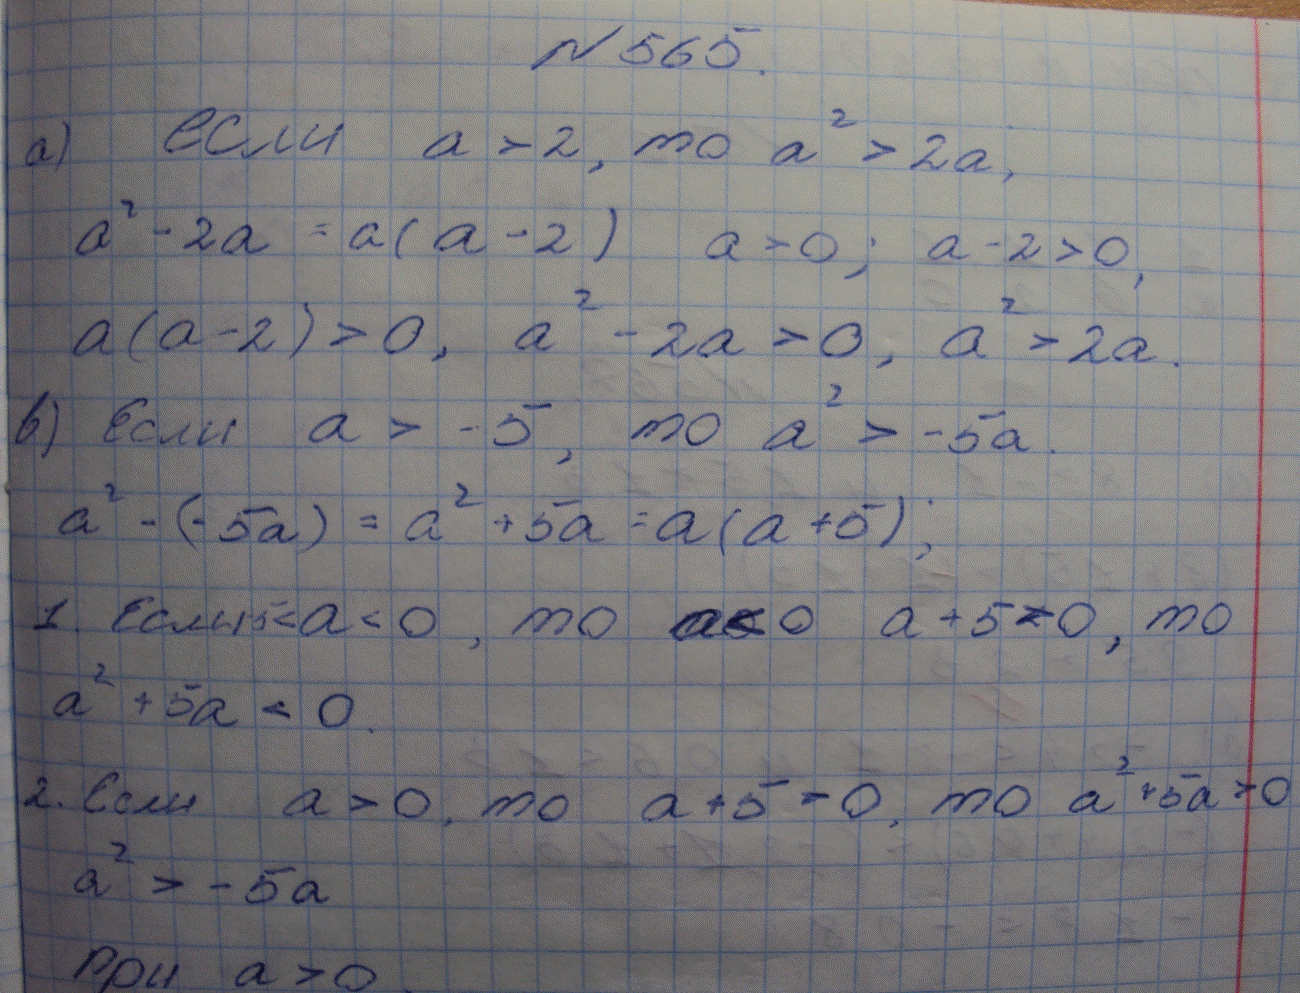 № 565.
а) если a > 2, то a² > 2a;
a² - 2a = a(a - 2) a > 0; a - 2 > 0,
a(a - 2) > 0, a² - 2a > 0, a² > 2a.
в) Если a > -5, то a² > -5a.
a² - (-5a) = a² + 5a = a(a + 5);
1. Если -5 < a < 0, то a < 0 a + 5 > 0, то
a² + 5a < 0.
2. Если a > 0, то a + 5 > 0, то a² + 5a > 0
a² > -5a
при a > 0.